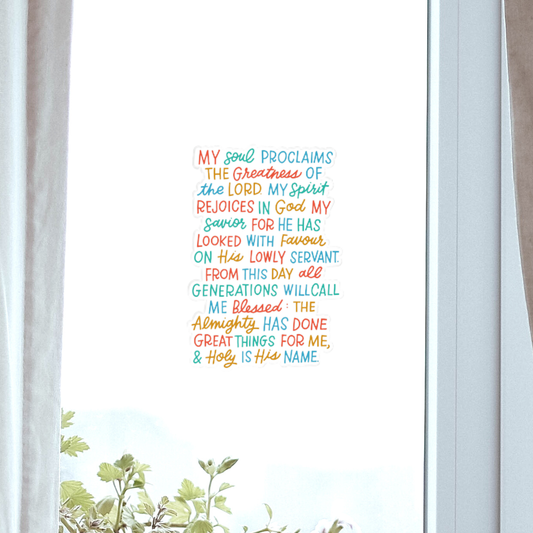 MY soul PROCLAIMS
THE Greatness OF
the LORD MY Spirit
REJOICES IN God MY
Savior FOR HE HAS
LOOKED WITH Favour
ON His LOWLY SERVANT.
FROM THIS DAY all
GENERATIONS WILLCALL
ME Blessed: THE
Almighty HAS DONE
GREAT THINGS FOR ME,
& Holy IS His NAME.